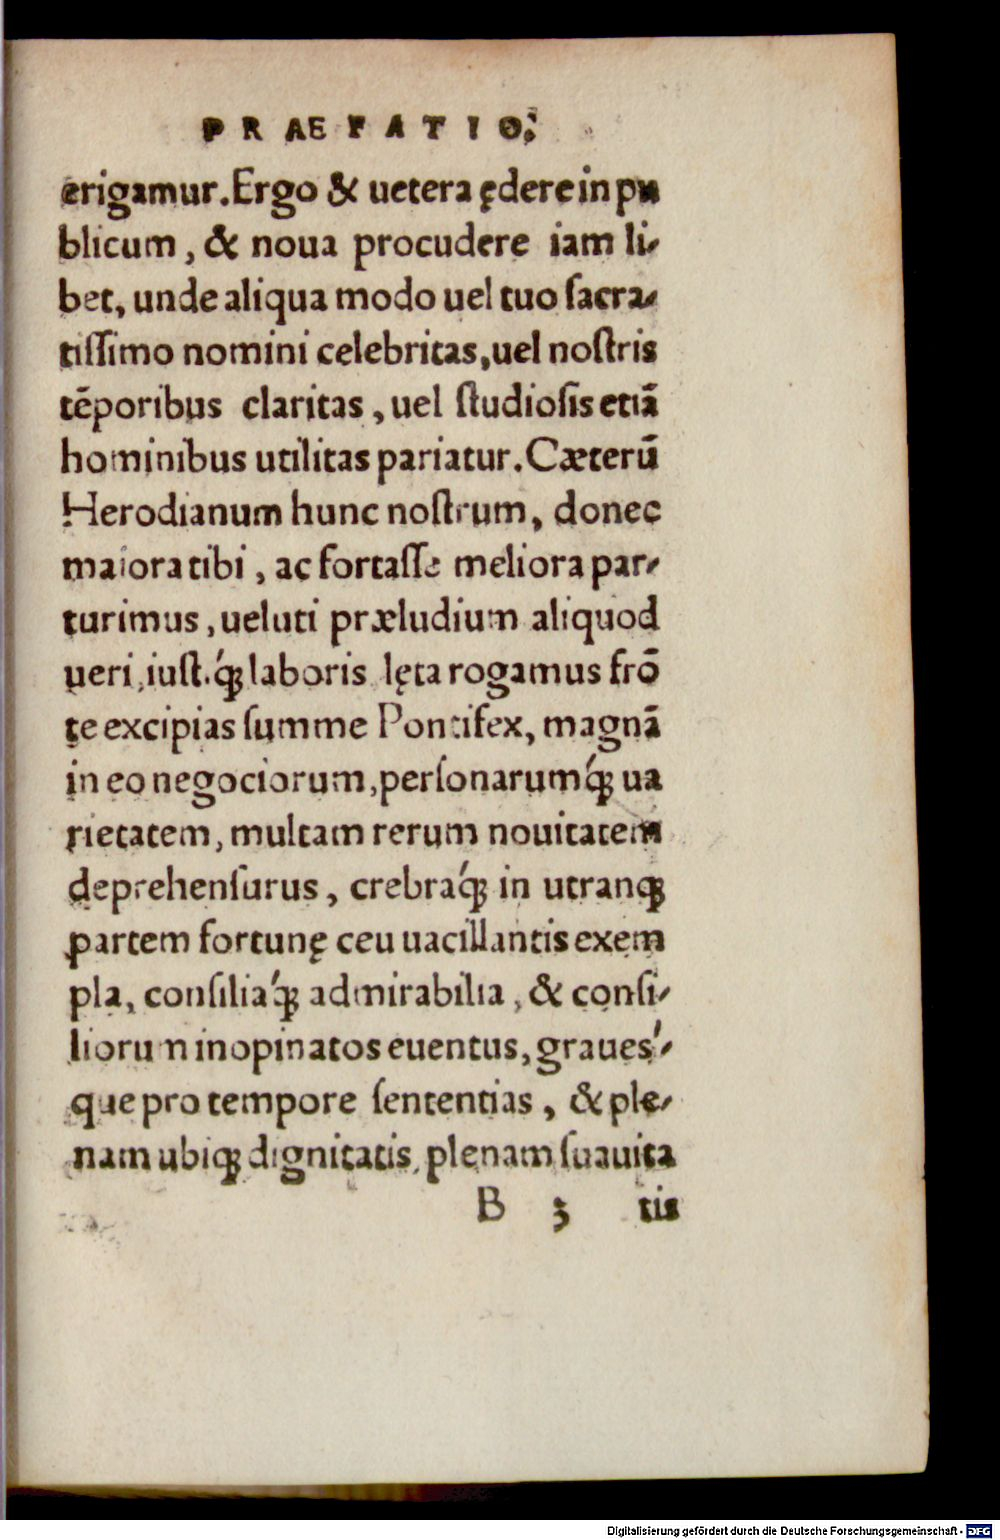 PRAEFATIO.
erigamur. Ergo & uetera ędere in pu
blicum, & noua procudere iam li-
bet, unde aliqua modo uel tuo sacra-
tissimo nomini celebritas, uel nostris
tēporibus claritas, uel studiosis etiā
hominibus utilitas pariatur. Cæterū
Herodianum hunc nostrum, donec
maiora tibi, ac fortasse meliora par-
turimus, ueluti præludium aliquod
ueri, iustiq́ꝫ laboris lęta rogamus frō
te excipias summe Pontifex, magnā
in eo negociorum, personarumq́ꝫ ua
rietatem, multam rerum nouitatem
deprehensurus, crebraq́ꝫ in utranqꝫ
partem fortunę ceu uacillantis exem
pla, consiliaq́ꝫ admirabilia, & consi-
liorum inopinatos euentus, graues'-
que pro tempore sententias, & ple-
nam ubiqꝫ dignitatis, plenam suauita
B 3 tis
Digitalisierung gefördert durch die Deutsche Forschungsgemeinschaft - DFG